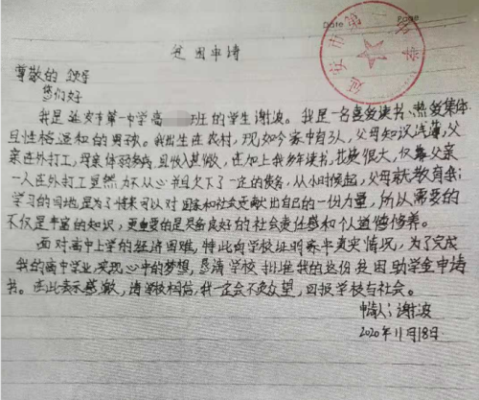 Date
Page
延安市第一中学
贫困申请
尊敬的领导
您们好
我是延安市第一中学高 班的学生谢波。我是一名喜爱读书、热爱集体
且性格温和的男孩。我出生在农村,现如今家中有3人,父母知识浅薄,父
亲在外打工,母亲体弱多病,且收入甚微,在加上我多年读书,花费很大,仅靠父亲
一人在外打工显然力不从心并且欠下了一定的债务,从小时候起,父母就教育余:
学习的目地是为了将来可以对国家和社会贡献出自己的一份力量,所以需要的
不仅是丰富的知识,更重要的是具备良好的社会责任感和个道德修养。
面对高中上学的经济困难,特此向学校证明家中真实情况,为了完成
我的高中学业,实现心中的梦想,恳请学校批准我的这份贫困助学金申请
书。在此表示感激,请学校相信,我一定会不负众望,回报学校与社会。
申请人:谢波
2020年11月18日